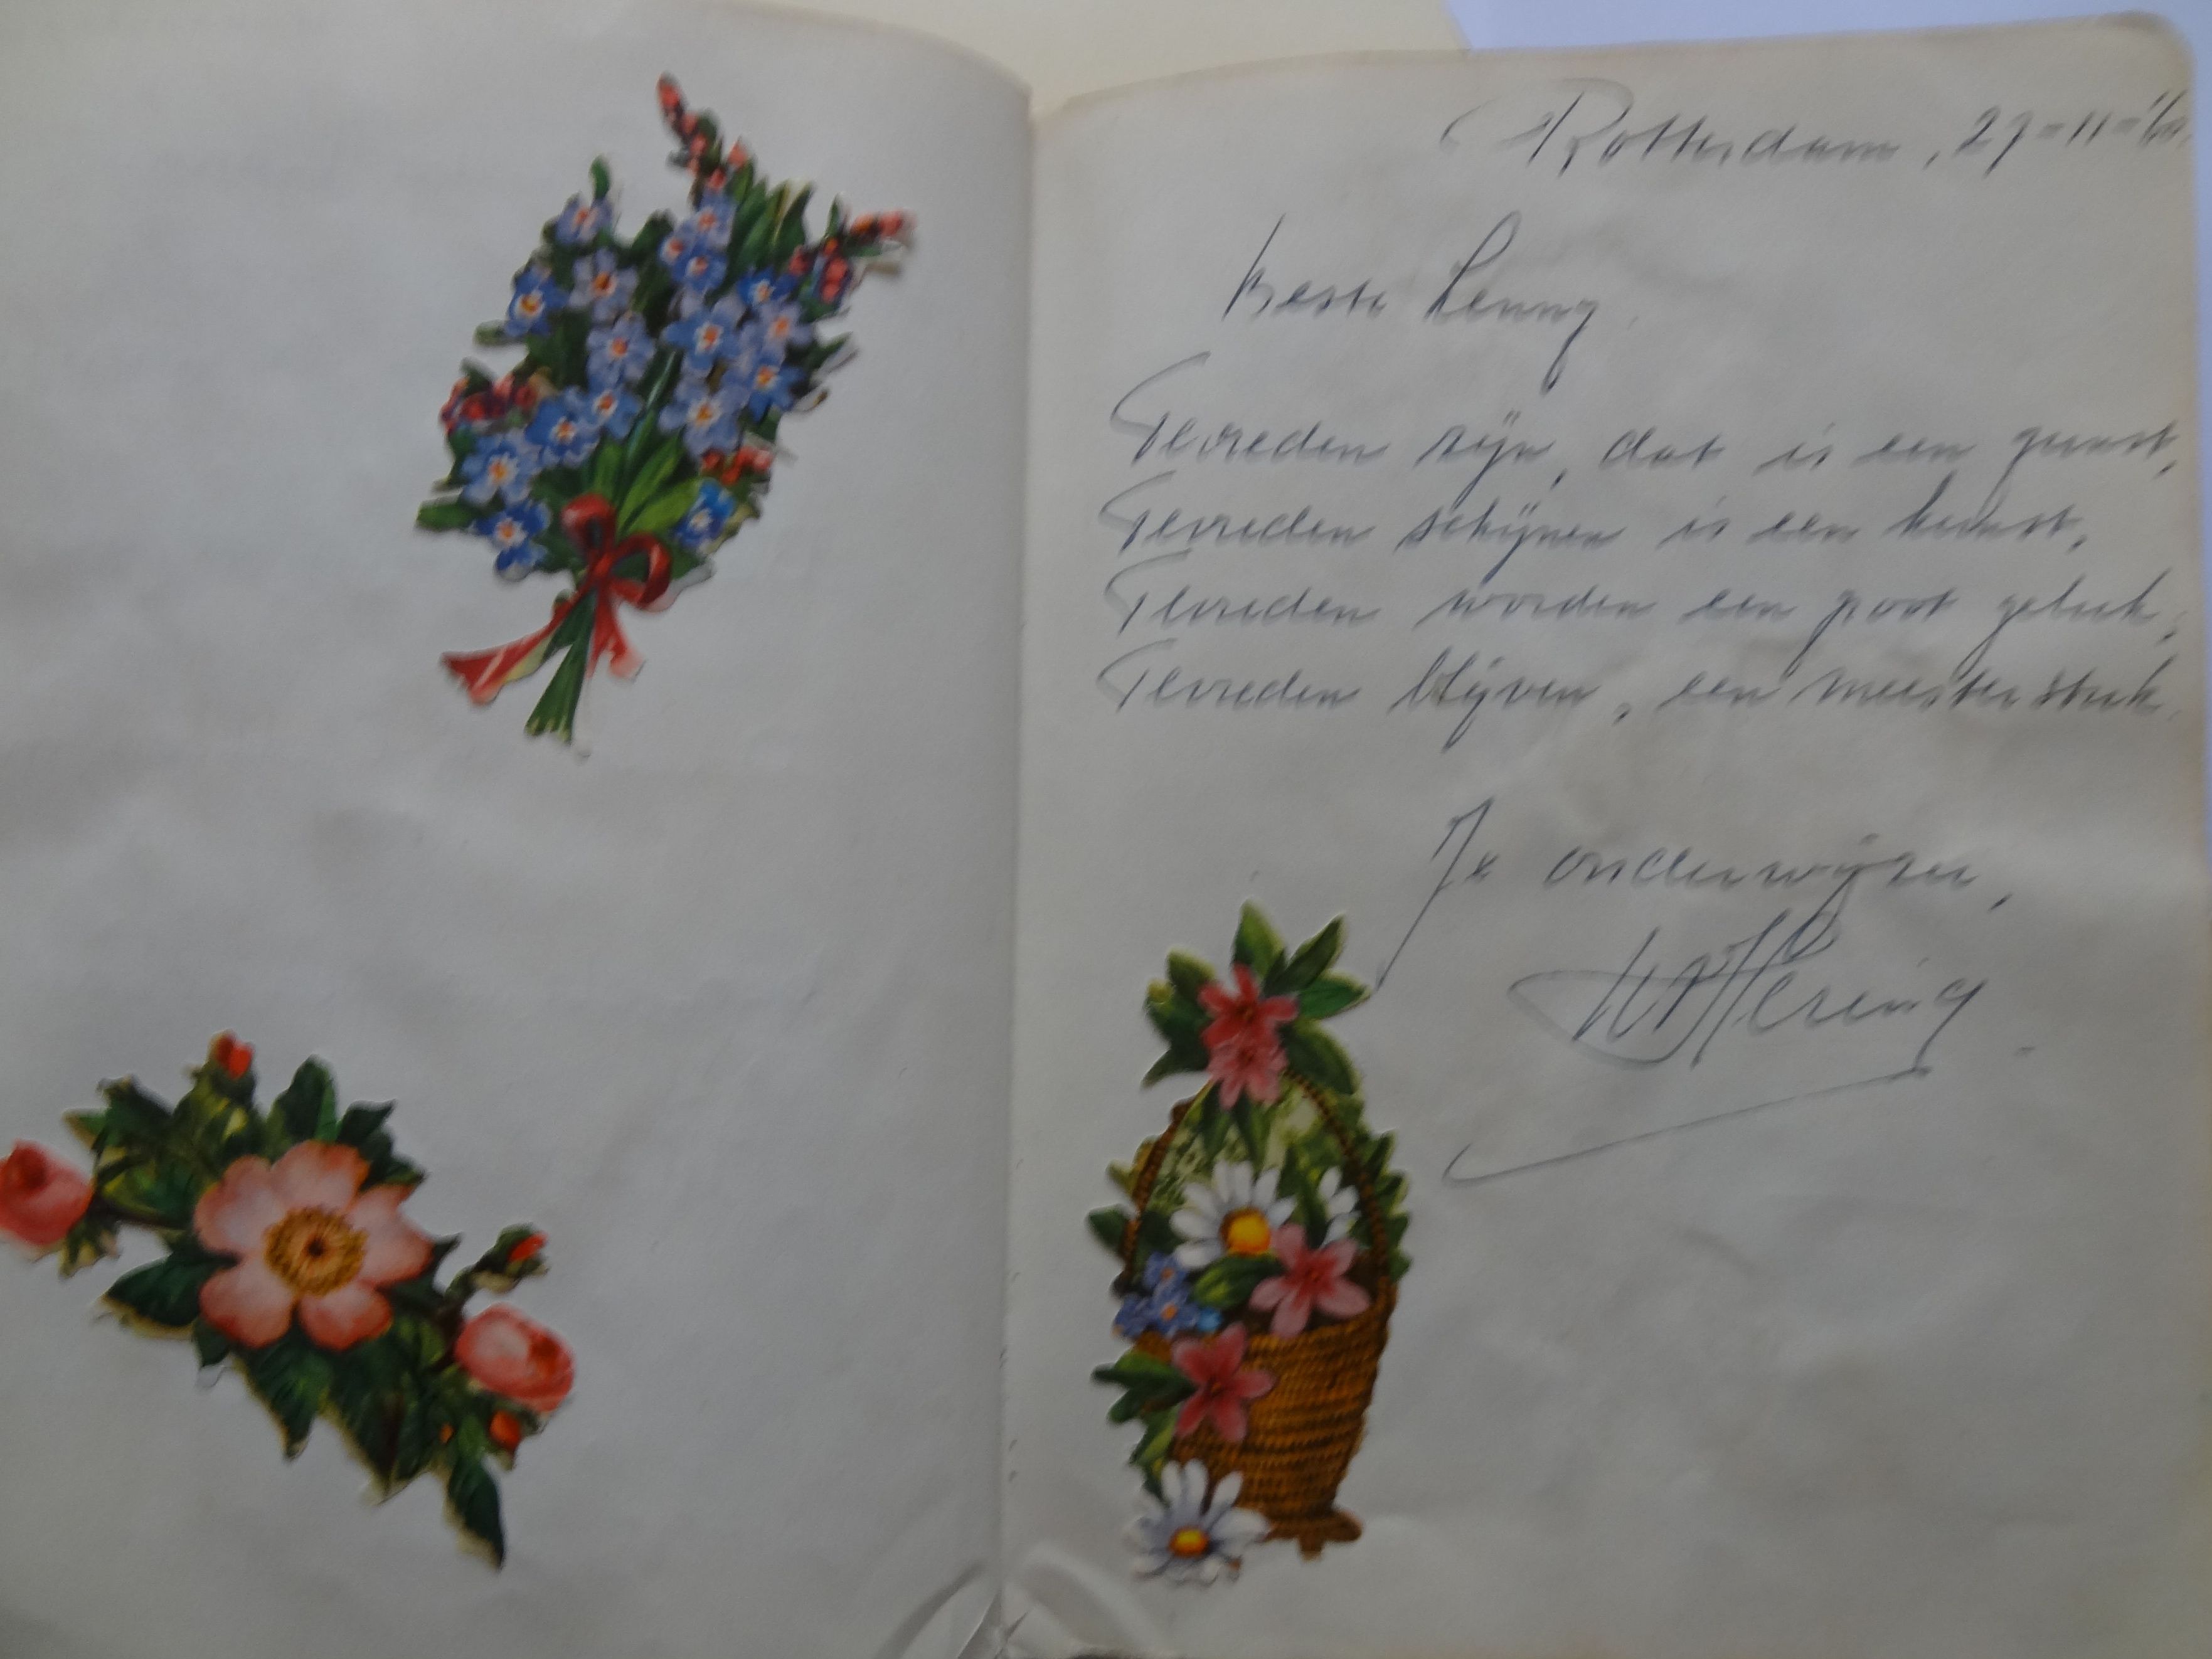 Rotterdam,
Beste Lenny.
Tevreden zijn, dat is een gunst,
Tevreden schijnen is een kunst,
Tevreden worden een groot geluk,
Tevreden blijven, een meesterstuk.
Je onderwijzer,
Hering.